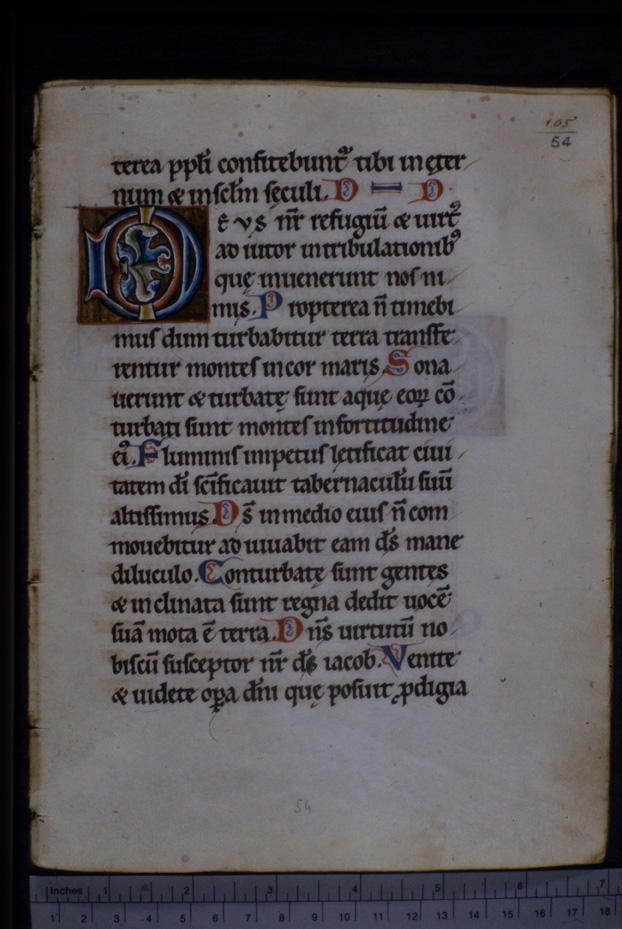 105
54
terea ppl̄i confitebunt᷑ tibi in ęter
num & in scl̄m sęculi. D D
DEVS nr̄ refugiū & uirt᷑
adiutor in tribulationib᷒
que inuenerunt nos ni
mis. Propterea n̄ timebi
mus dum turbabitur terra transfe
rentur montes in cor maris. Sona
uerunt & turbatę sunt aquę eoꝝ cō
turbati sunt montes in fortitudine
ei᷒. Fluminis impetus lętificat ciui
tatem dī scīficauit tabernacul̄u suū
altissimus. Ds̄ in medio eius n̄ com
mouebitur adiuuabit eam ds̄ mane
diluculo. Conturbatę sunt gentes
& inclinata sunt regna dedit uocē
suā mota ē terra. Dn̄s uirtutū no
biscū susceptor nr̄ ds̄ iacob. Venite
& uidete oꝑa dn̄i quę posuit ꝓdigia
54
Inches 1 2 3 4 5 6 7
1 2 3 4 5 6 7 8 9 10 11 12 13 14 15 16 17 18